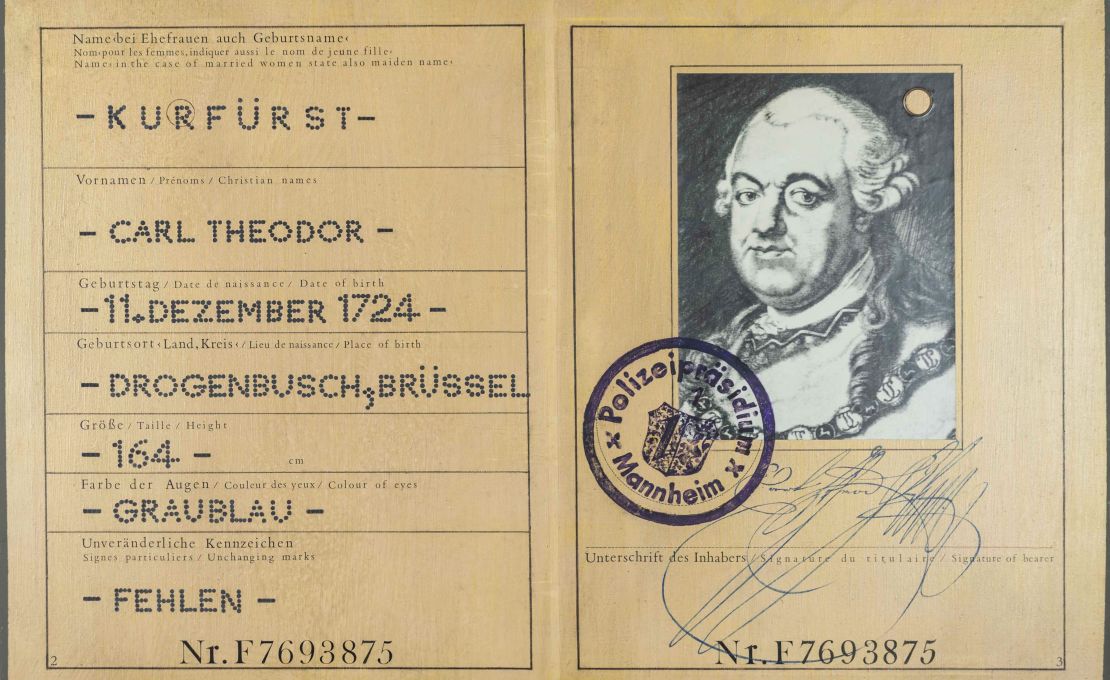 Name‹bei Ehefrauen auch Geburtsname‹
Nom‹pour les femmes, indiquer aussi le nom de jeune fille‹
Name‹ in the case of married women state also maiden name‹
– KURFÜRST –
Vornamen / Prénoms / Christian names
– CARL THEODOR –
Geburtstag / Date de naissance / Date of birth
– 11. DEZEMBER 1724 –
Geburtsort ‹ Land, Kreis ‹ / Lieu de naissance / Place of birth
– DROGENBUSCH, BRÜSSEL
Größe / Taille / Height
– 164 – cm
Farbe der Augen / Couleur des yeux / Colour of eyes
– GRAUBLAU –
Unveränderliche Kennzeichen
Signes particuliers / Unchanging marks
– FEHLEN –
Nr. F7693875
2
Polizeipräsidium
Mannheim
Unterschrift des Inhabers / Signature du titulaire / Signature of bearer
Nr. F7693875
3